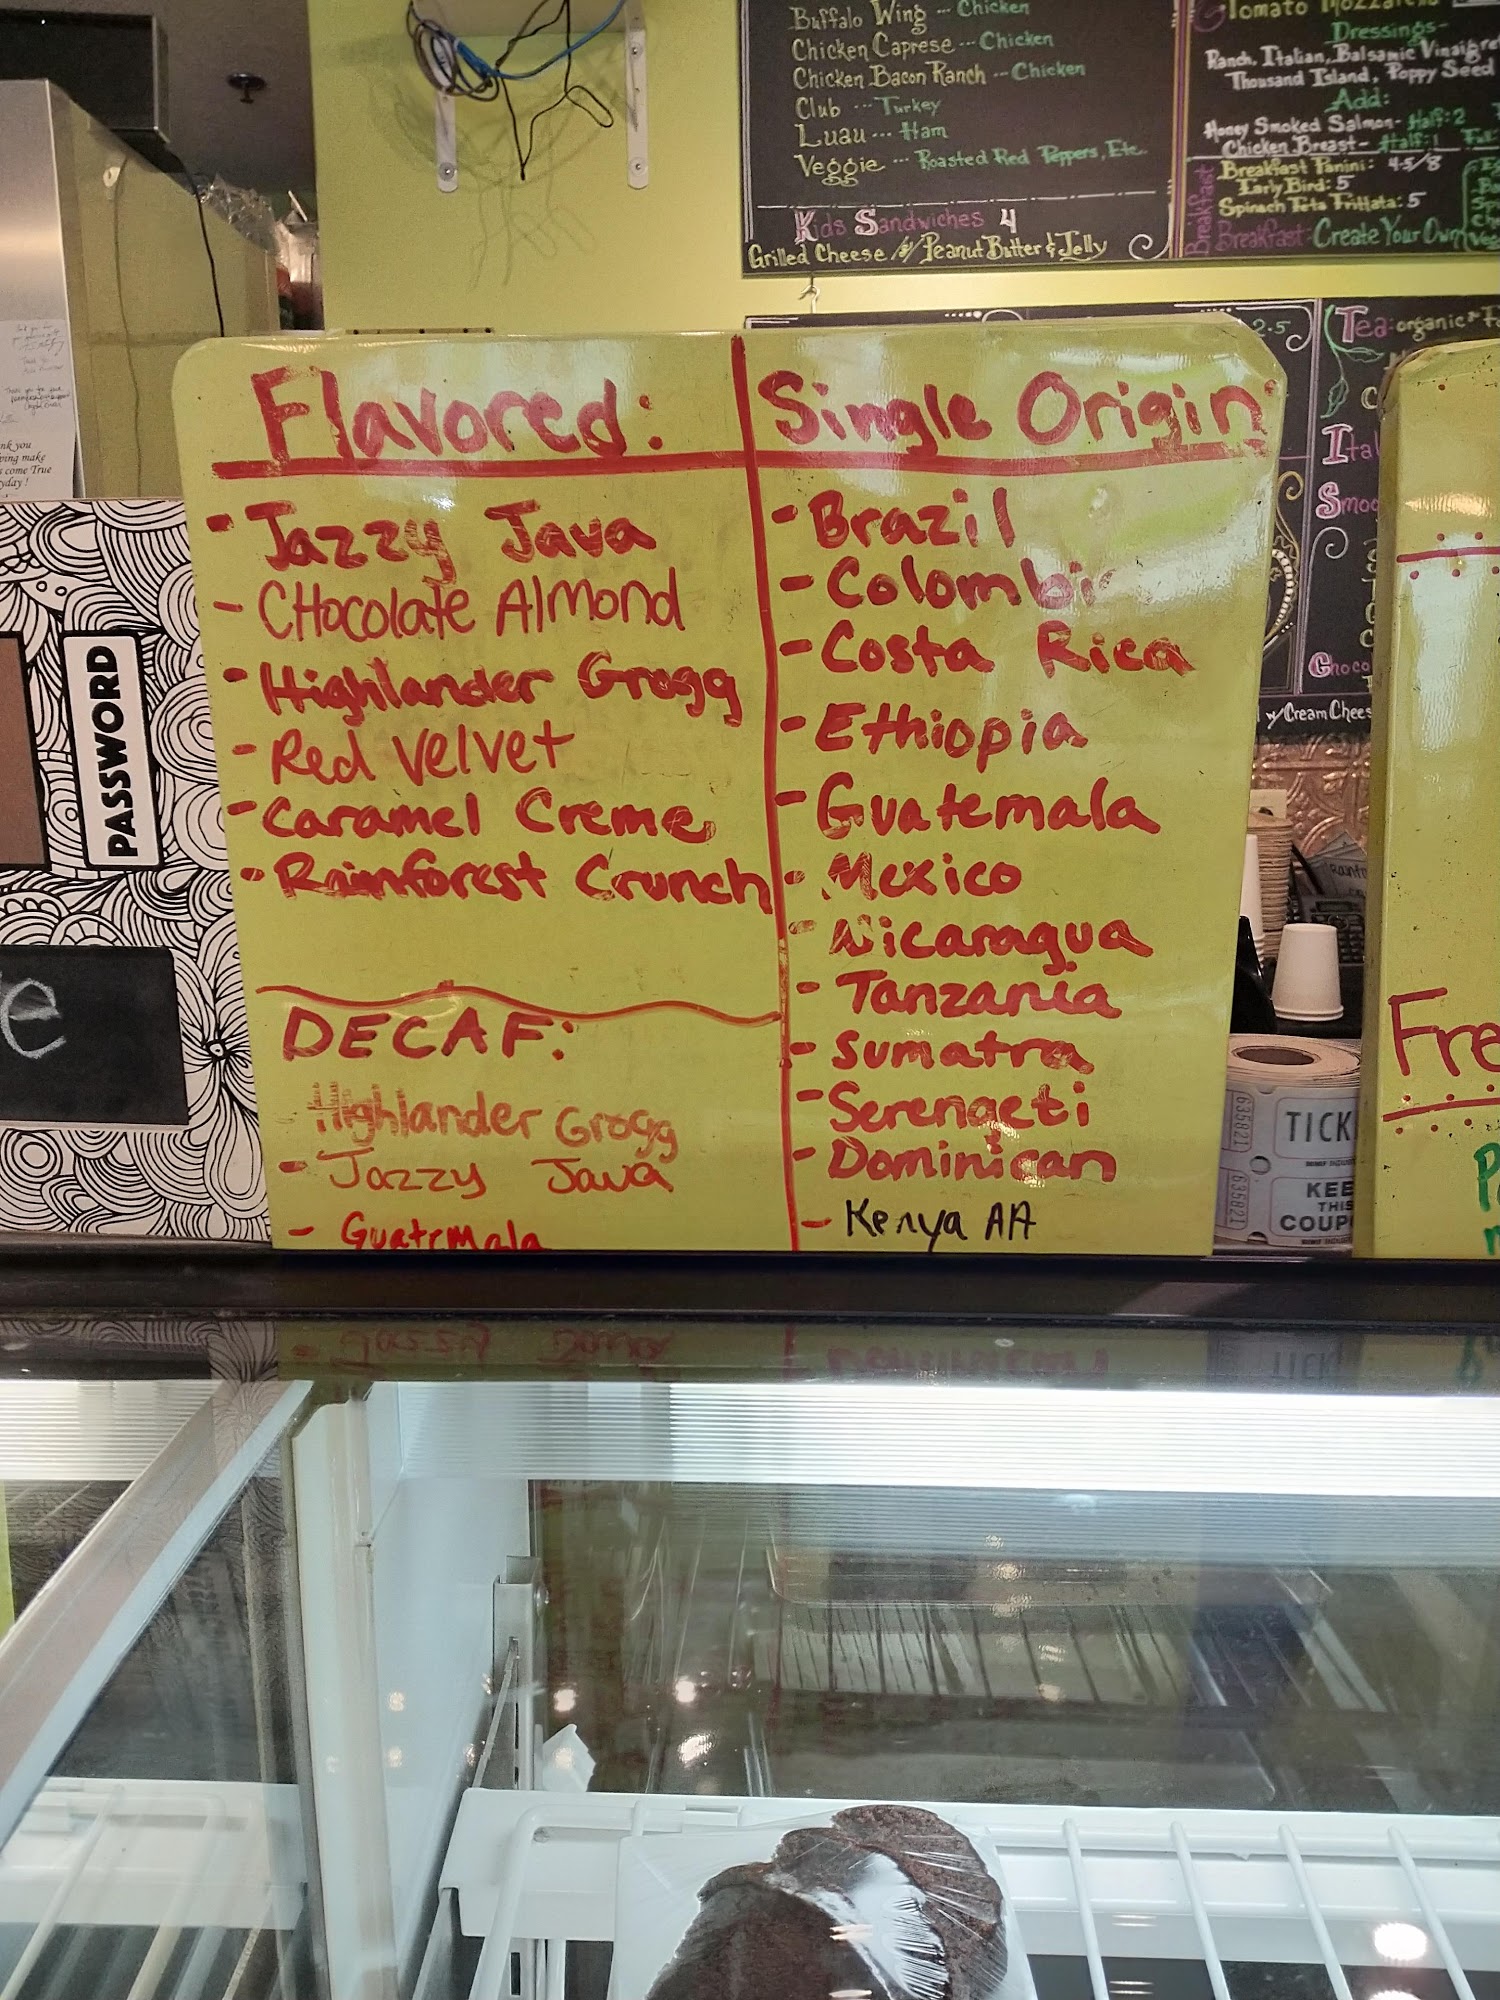 Buffalo Wing --- Chicken
Chicken Caprese --- Chicken
Chicken Bacon Ranch --- Chicken
Club --- Turkey
Luau --- Ham
Veggie --- Roasted Red Peppers, Etc.
Kids Sandwiches 4
Grilled Cheese // Peanut Butter & Jelly
Tomato Mozzarella
Dressings-
Ranch, Italian, Balsamic Vinaigre
Thousand Island, Poppy Seed
Add:
Honey Smoked Salmon- Half: 2
Chicken Breast- Half: 1 Full:
Breakfast
Breakfast Panini: 4.5/8
Early Bird: 5
Spinach Feta Frittata: 5
Breakfast: Create Your Own
2.5
Tea: organic
Ital
Smoo
Choco
w/ Cream Chees
Flavored:
- Jazzy Java
- CHocolate Almond
- Highlander Grogg
- Red Velvet
- Caramel Creme
- Rainforest Crunch
DECAF:
Highlander Grogg
- Jazzy Java
- Guatemala
Single Origin
- Brazil
- Colombi
- Costa Rica
- Ethiopia
- Guatemala
- Mexico
- Nicaragua
- Tanzania
- Sumatra
- Serengeti
- Dominican
- Kenya AA
PASSWORD
e
nk you
ping make
s come True
yday!
635821
TICK
635821
KEE
THIS
COUP
Fre